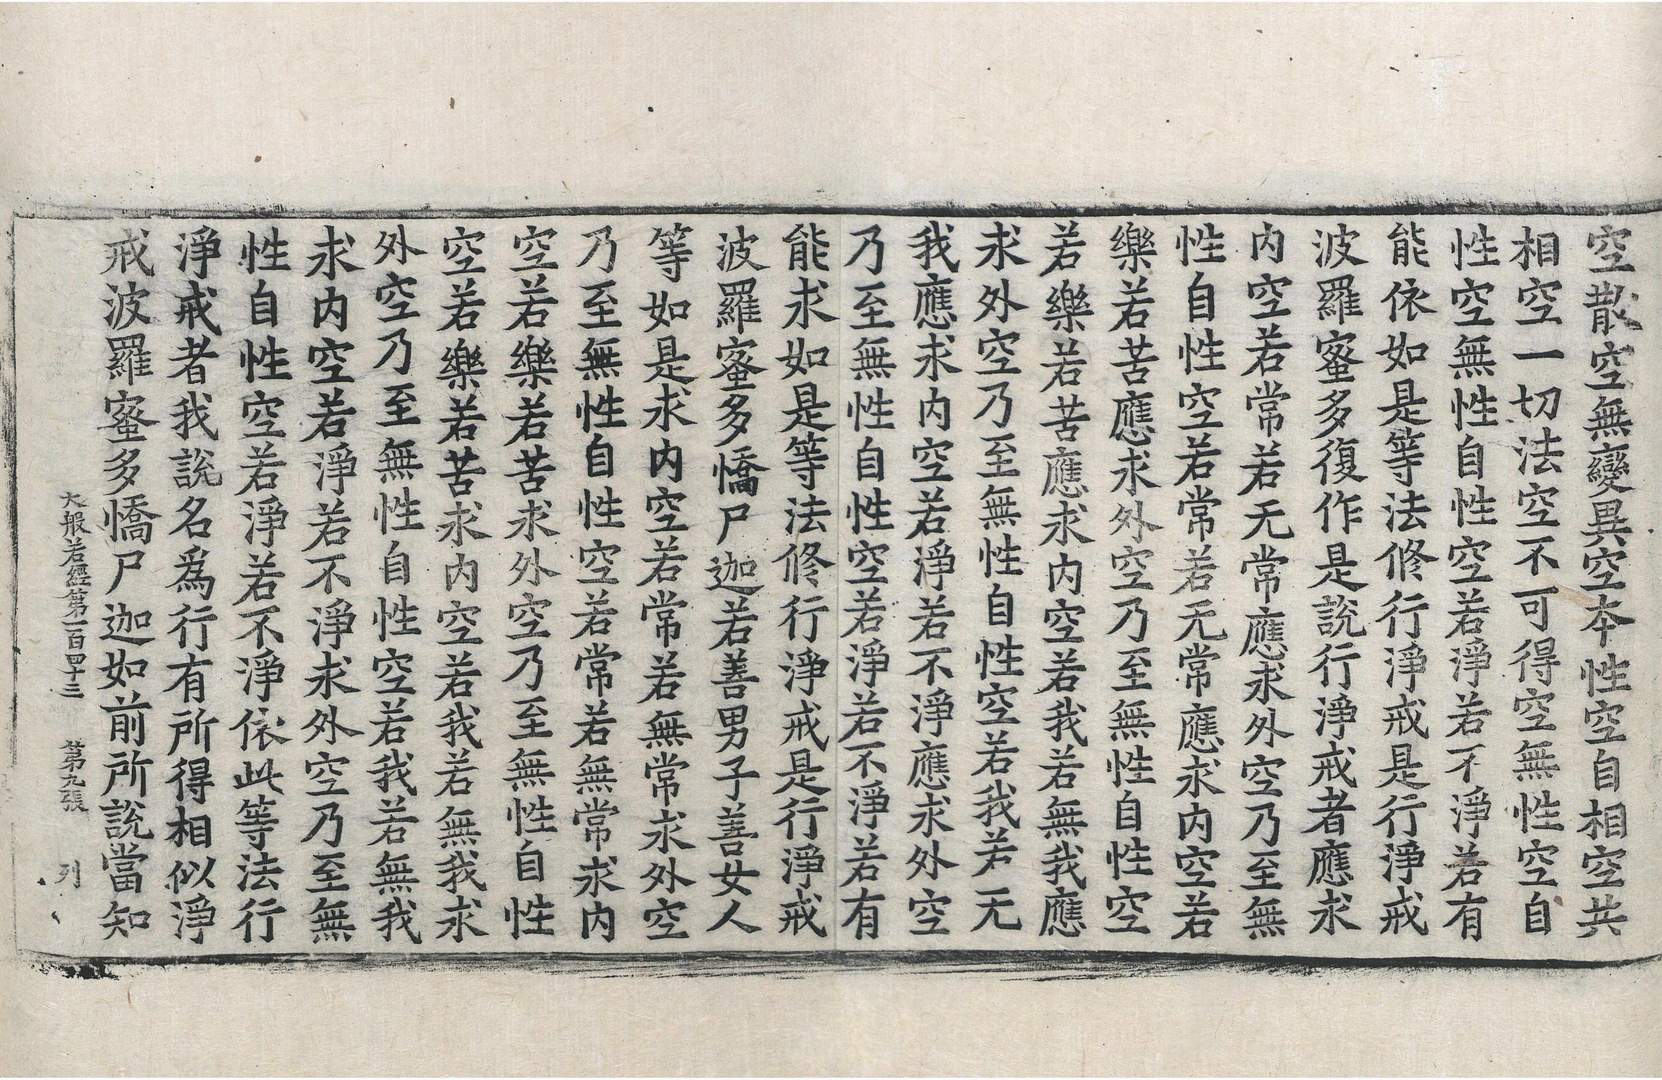 空散空無變異空本性空自相空共
相空一切法空不可得空無性空自
性空無性自性空若淨若不淨若有
能依如是等法修行淨戒是行淨戒
波羅蜜多復作是說行淨戒者應求
内空若常若无常應求外空乃至無
性自性空若常若无常應求内空若
樂若苦應求外空乃至無性自性空
若樂若苦應求内空若我若無我應
求外空乃至無性自性空若我若无
我應求内空若淨若不淨應求外空
乃至無性自性空若淨若不淨若有
能求如是等法修行淨戒是行淨戒
波羅蜜多憍尸迦若善男子善女人
等如是求内空若常若無常求外空
乃至無性自性空若常若無常求内
空若樂若苦求外空乃至無性自性
空若樂若苦求内空若我若無我求
外空乃至無性自性空若我若無我
求内空若淨若不淨求外空乃至無
性自性空若淨若不淨依此等法行
淨戒者我說名爲行有所得相似淨
戒波羅蜜多憍尸迦如前所說當知
大般若經第一百四十三 第九張 列